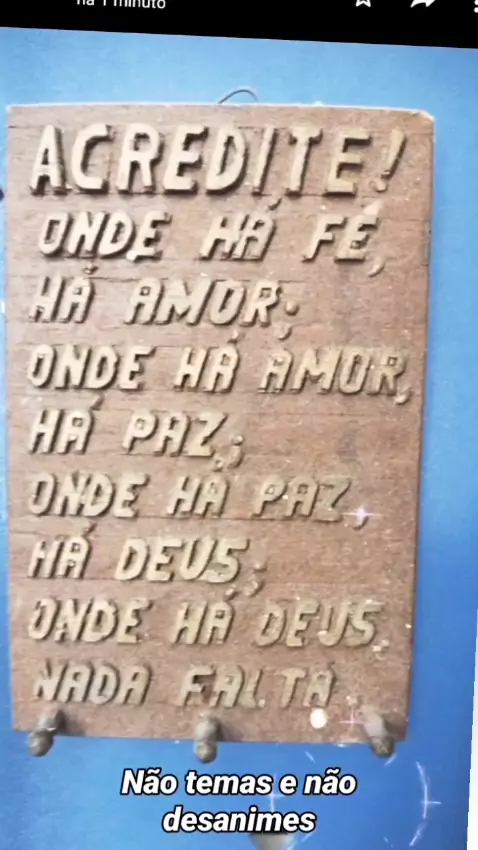 há 1 minuto
ACREDITE!
ONDE HÁ FÉ,
HÁ AMOR;
ONDE HÁ AMOR,
HÁ PAZ;
ONDE HÁ PAZ,
HÁ DEUS;
ONDE HÁ DEUS
NADA FALTA
Não temas e não
desanimes